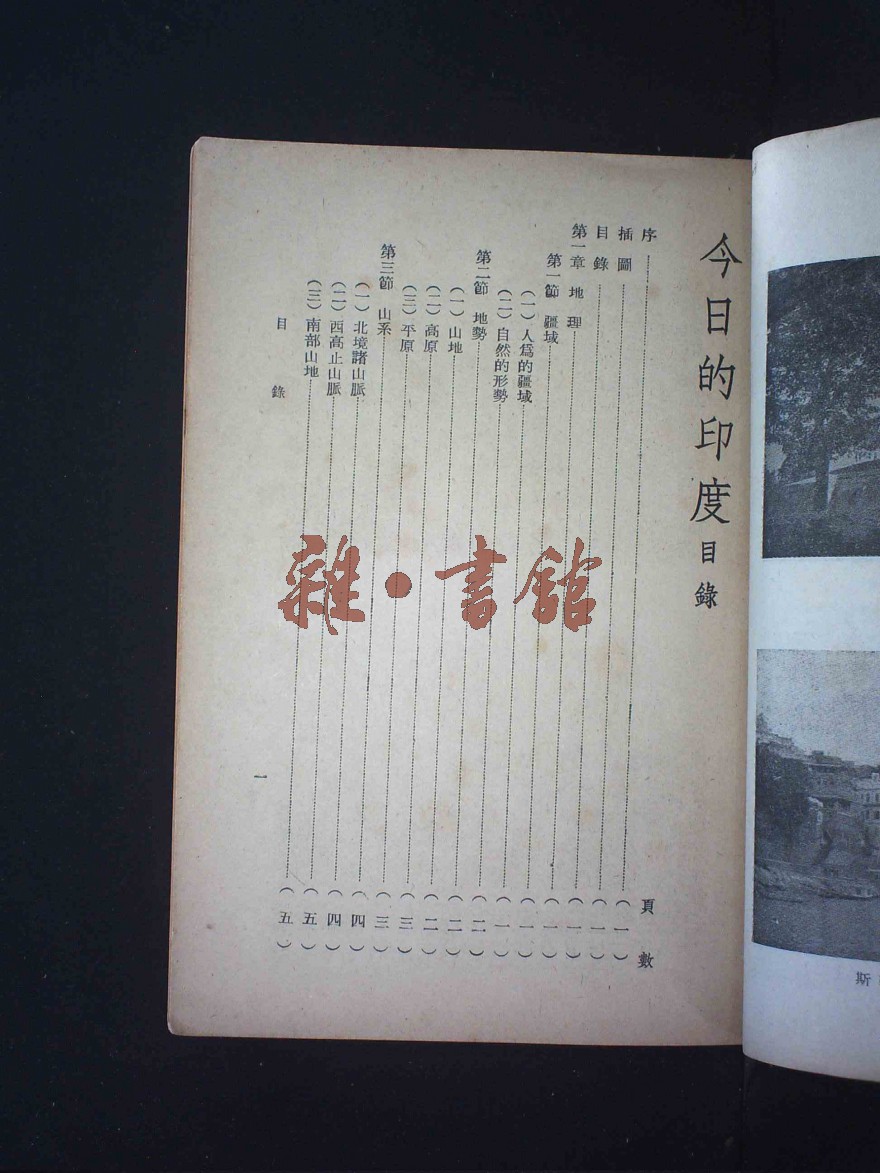 今日的印度目錄
頁數
序……(一)
插圖……(一)
目錄……(一)
第一章 地理……(一)
第一節 疆域……(一)
(一)人爲的疆域……(一)
(二)自然的形勢……(二)
第二節 地勢……(二)
(一)山地……(二)
(二)高原……(三)
(三)平原……(三)
第三節 山系……(四)
(一)北境諸山脈……(四)
(二)西高止山脈……(五)
(三)南部山地……(五)
目錄
一
雜·書館
斯